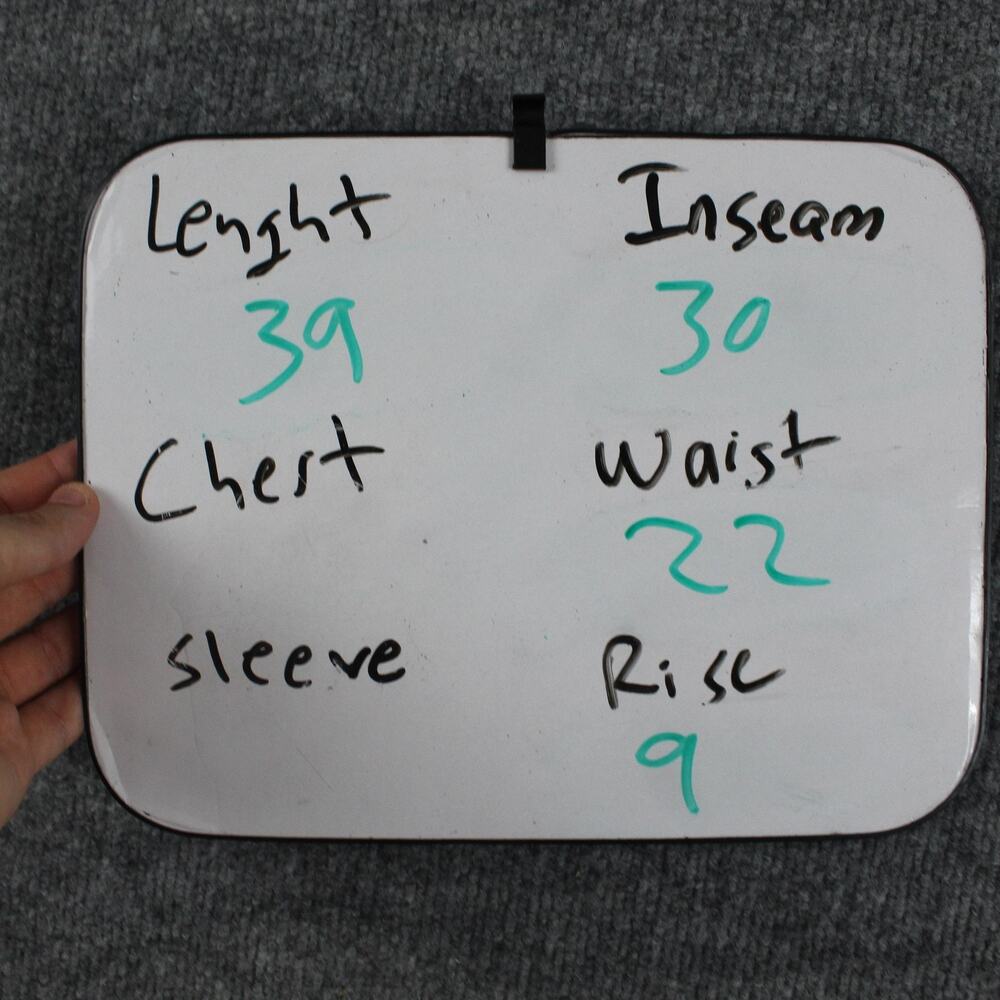 Lenght
39
Chest
sleeve
Inseam
30
Waist
22
Rise
9